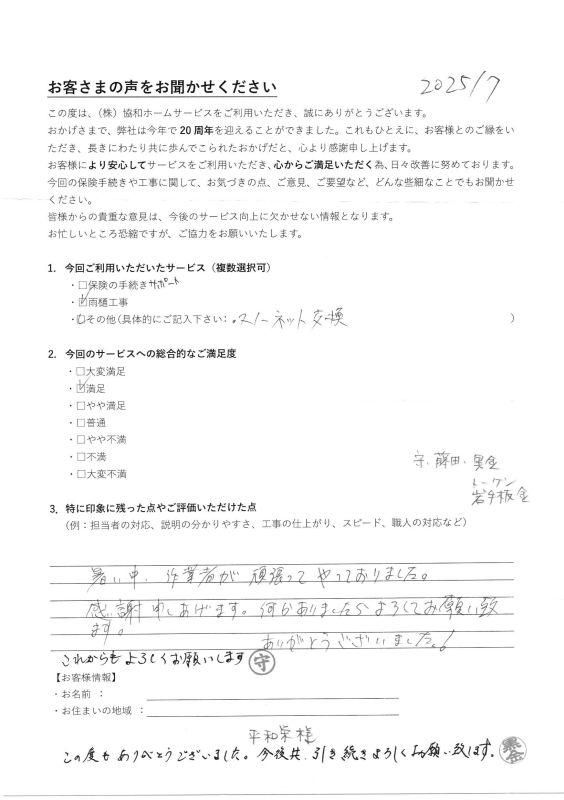 お客さまの声をお聞かせください
2025/7
この度は、（株）協和ホームサービスをご利用いただき、誠にありがとうございます。
おかげさまで、弊社は今年で 20 周年を迎えることができました。これもひとえに、お客様とのご縁をい
ただき、長きにわたり共に歩んでこられたおかげだと、心より感謝申し上げます。
お客様により安心してサービスをご利用いただき、心からご満足いただく為、日々改善に努めております。
今回の保険手続きや工事に関して、お気づきの点、ご意見、ご要望など、どんな些細なことでもお聞かせ
ください。
皆様からの貴重な意見は、今後のサービス向上に欠かせない情報となります。
お忙しいところ恐縮ですが、ご協力をお願いいたします。
1. 今回ご利用いただいたサービス（複数選択可）
・□保険の手続きサポート
・☑雨樋工事
・☑その他（具体的にご記入下さい：・スノーネット交換 ）
2. 今回のサービスへの総合的なご満足度
・□大変満足
・☑満足
・□やや満足
・□普通
・□やや不満
・□不満
・□大変不満
守・藤田・黒金
トークン
岩手板金
3. 特に印象に残った点やご評価いただけた点
（例：担当者の対応、説明の分かりやすさ、工事の仕上がり、スピード、職人の対応など）
暑い中、作業者が頑張ってやっておりました。
感謝申しあげます。何かありましたらよろしくお願い致
ます。
ありがとうございました。!
これからもよろしくお願いします 守
【お客様情報】
・お名前 ：
・お住まいの地域 ：
平和栄様
この度もありがとうございました。今後共、引き続きよろしくお願い致します。 黒金